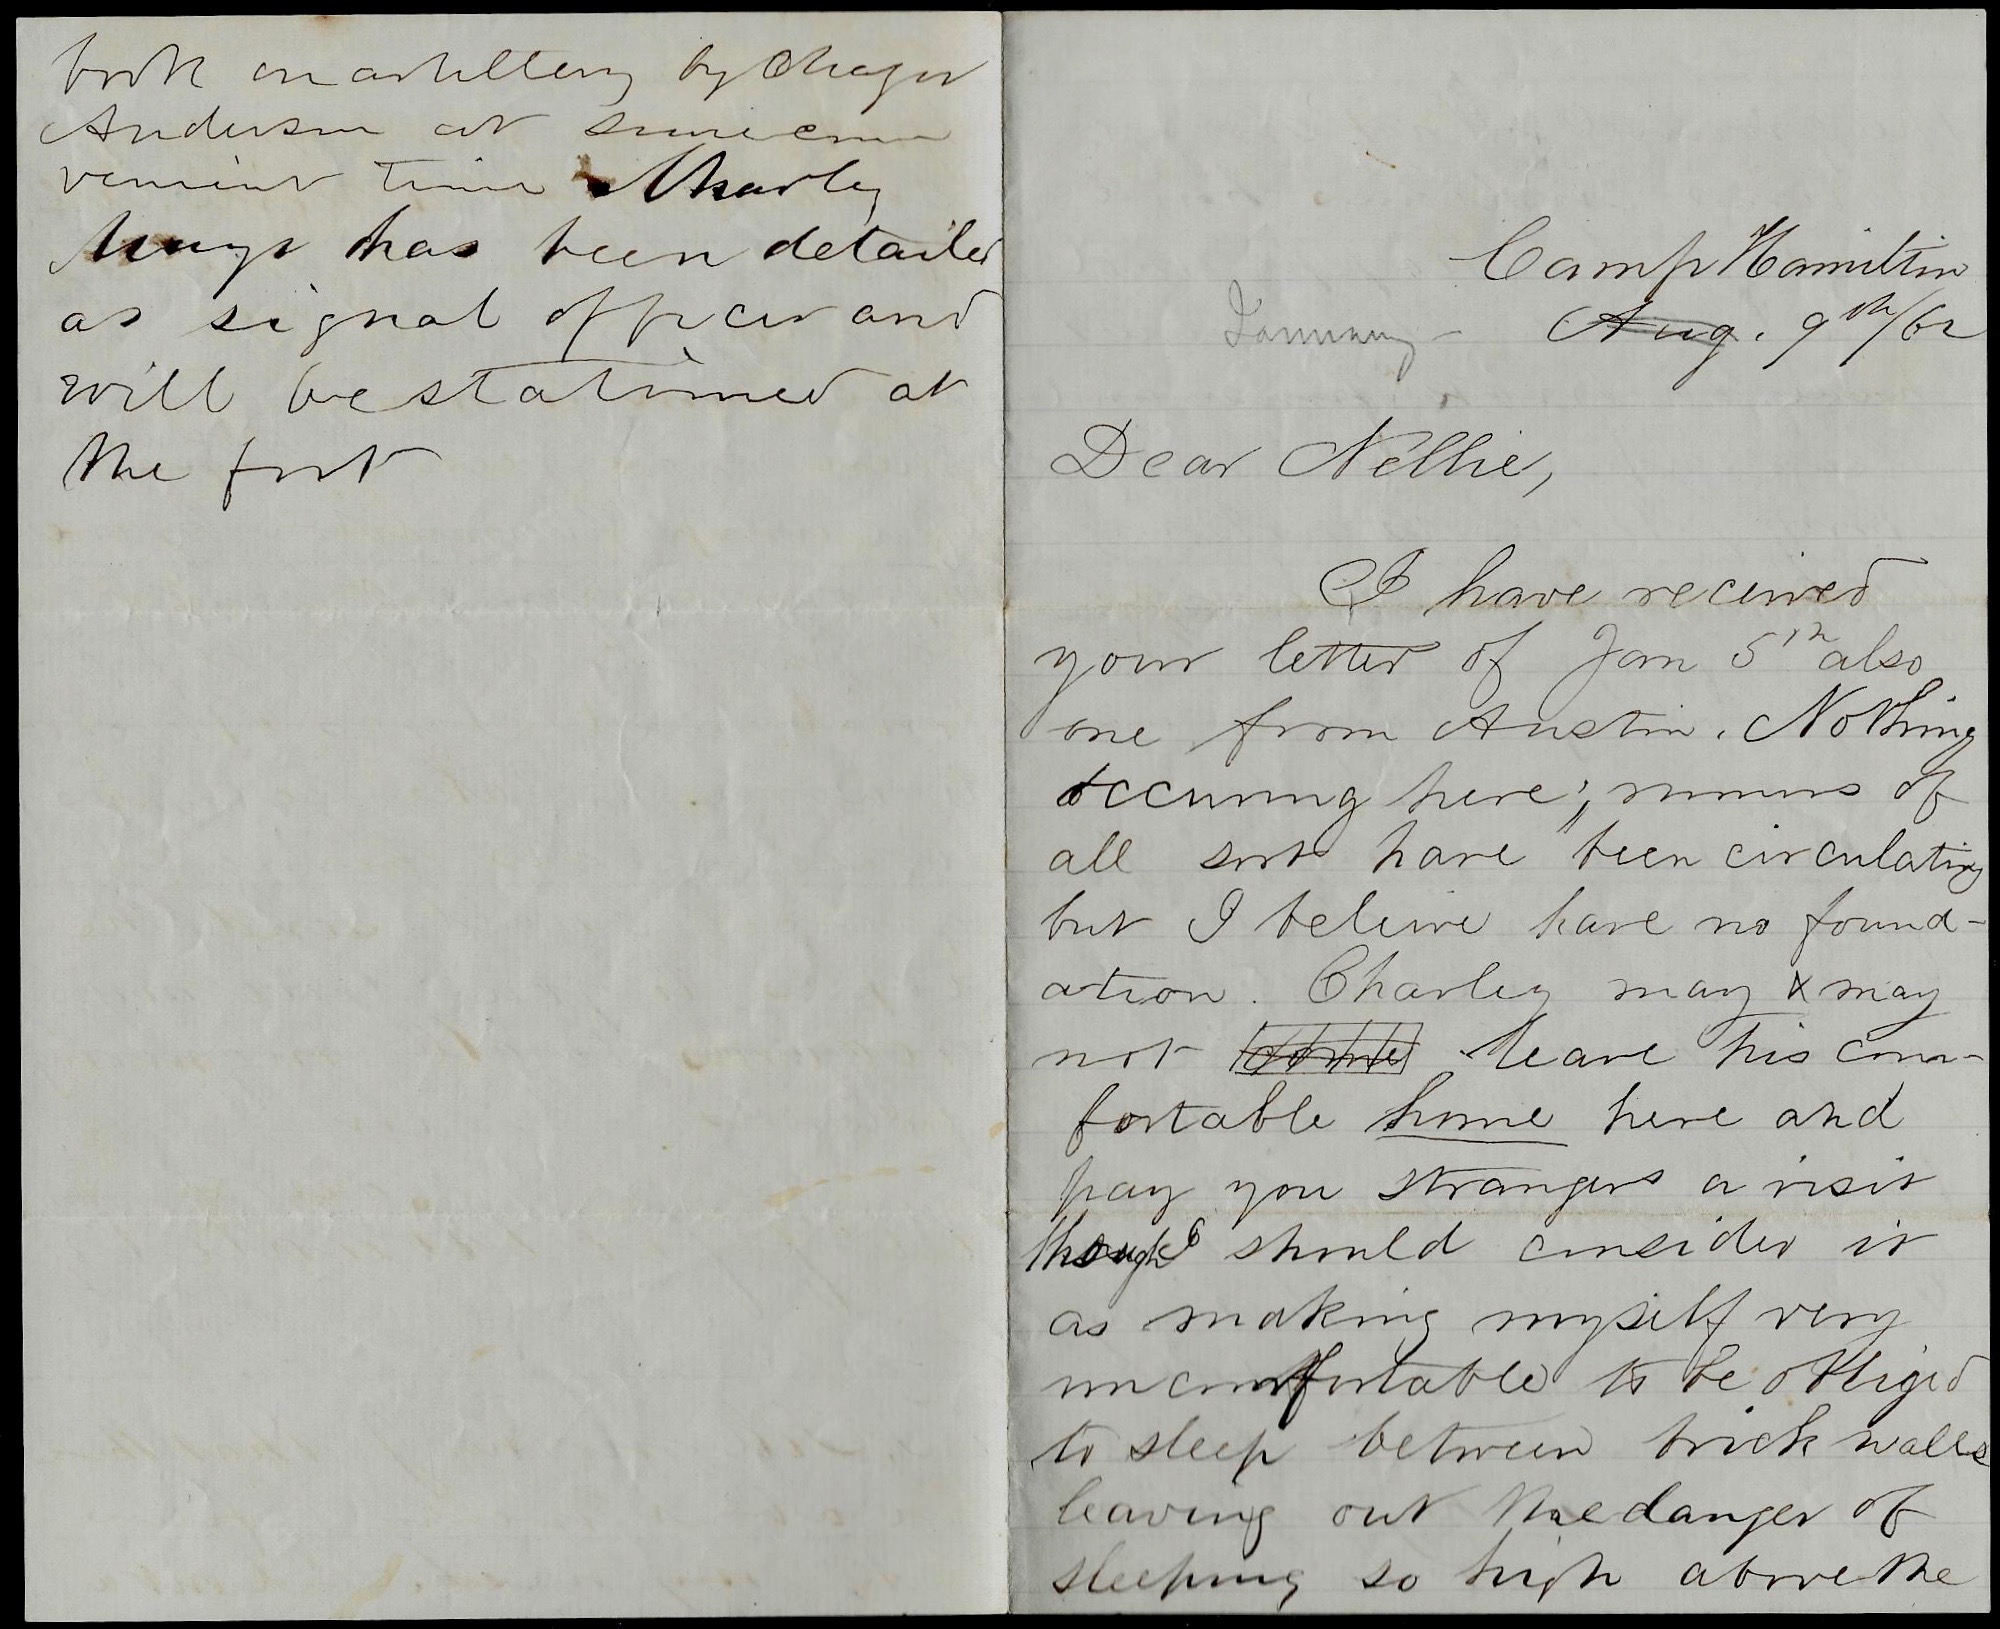 book on artillery by Major
Anderson at some con
venient time Charley
has been detailed
as signal officer and
will be stationed at
the fort
Camp Hamilton
January - Aug. 9th/62
Dear Nellie,
I have received
your letter of Jan 5th also
one from Austin. Nothing
occuring here; rumors of
all sort have been circulating
but I beleive have no found-
ation. Charley may & may
not come leave his com-
fortable home here and
pay you strangers a visit
though I should consider it
as making myself very
uncomfortable to be obliged
to sleep between brick walls
leaving out the danger of
sleeping so high above the